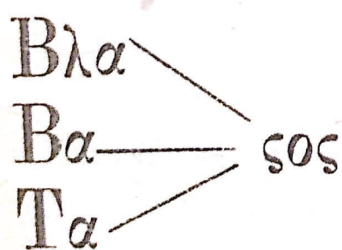 Βλα
Βα
Τα
ςος